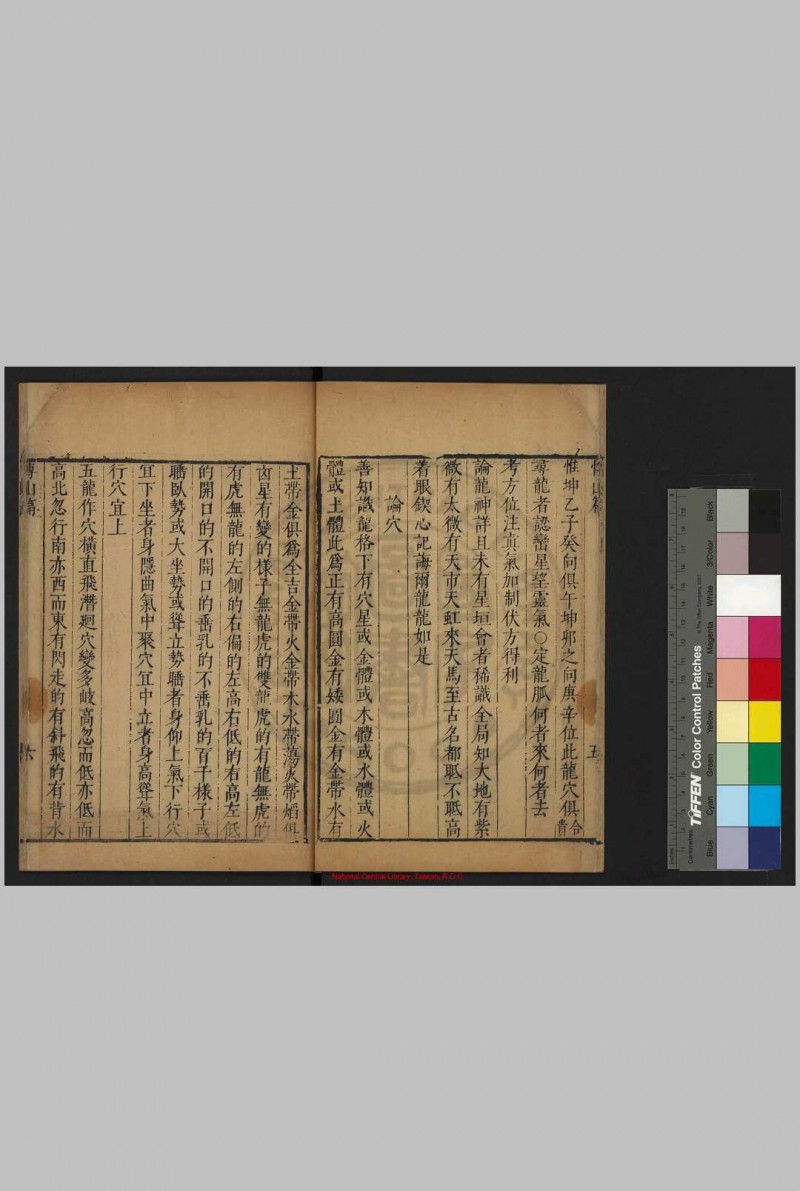 惟坤乙子癸向俱午坤卯之向庚辛位此龍穴俱合貴
尋龍者認巒星望靈氣○定龍脈何者來何者去
考方位注真氣加制伏方得利
論龍神詳且未有星垣會者稀識全局知大地有紫
微有太微有天市天虹來天馬至古名都貶不貶高
着眼鍥心記誨爾龍龍如是
論穴
善知識龍格下有穴星或金體或木體或水體或火
體或土體此爲正有高圓金有矮圓金有金帶水有
土帶金俱爲全吉金帶火金帶木水帶蕩火帶焰俱
凶星有變的樣子無龍虎的雙龍虎的有龍無虎的
有虎無龍的左側的右偏的左高右低的右高左低
的開口的不開口的垂乳的不垂乳的百千樣子或
聽臥勢或大坐勢或聳立勢聽者身仰上氣下行穴
宜下坐者身隱曲氣中聚穴宜中立者身高聳氣上
行穴宜上
五龍作穴橫直飛潛廻穴變多岐高忽而低亦低而
高北忽行南亦西而東有閃走的有斜飛的有背水
博山篇
五
博山篇
六
National Central Library, Taiwan, R.O.C
TIFFEN Color Control Patches
© The Tiffen Company, 2007
Centimetres
Blue
Cyan
Green
Yellow
Red
Magenta
White
3/Color
Black